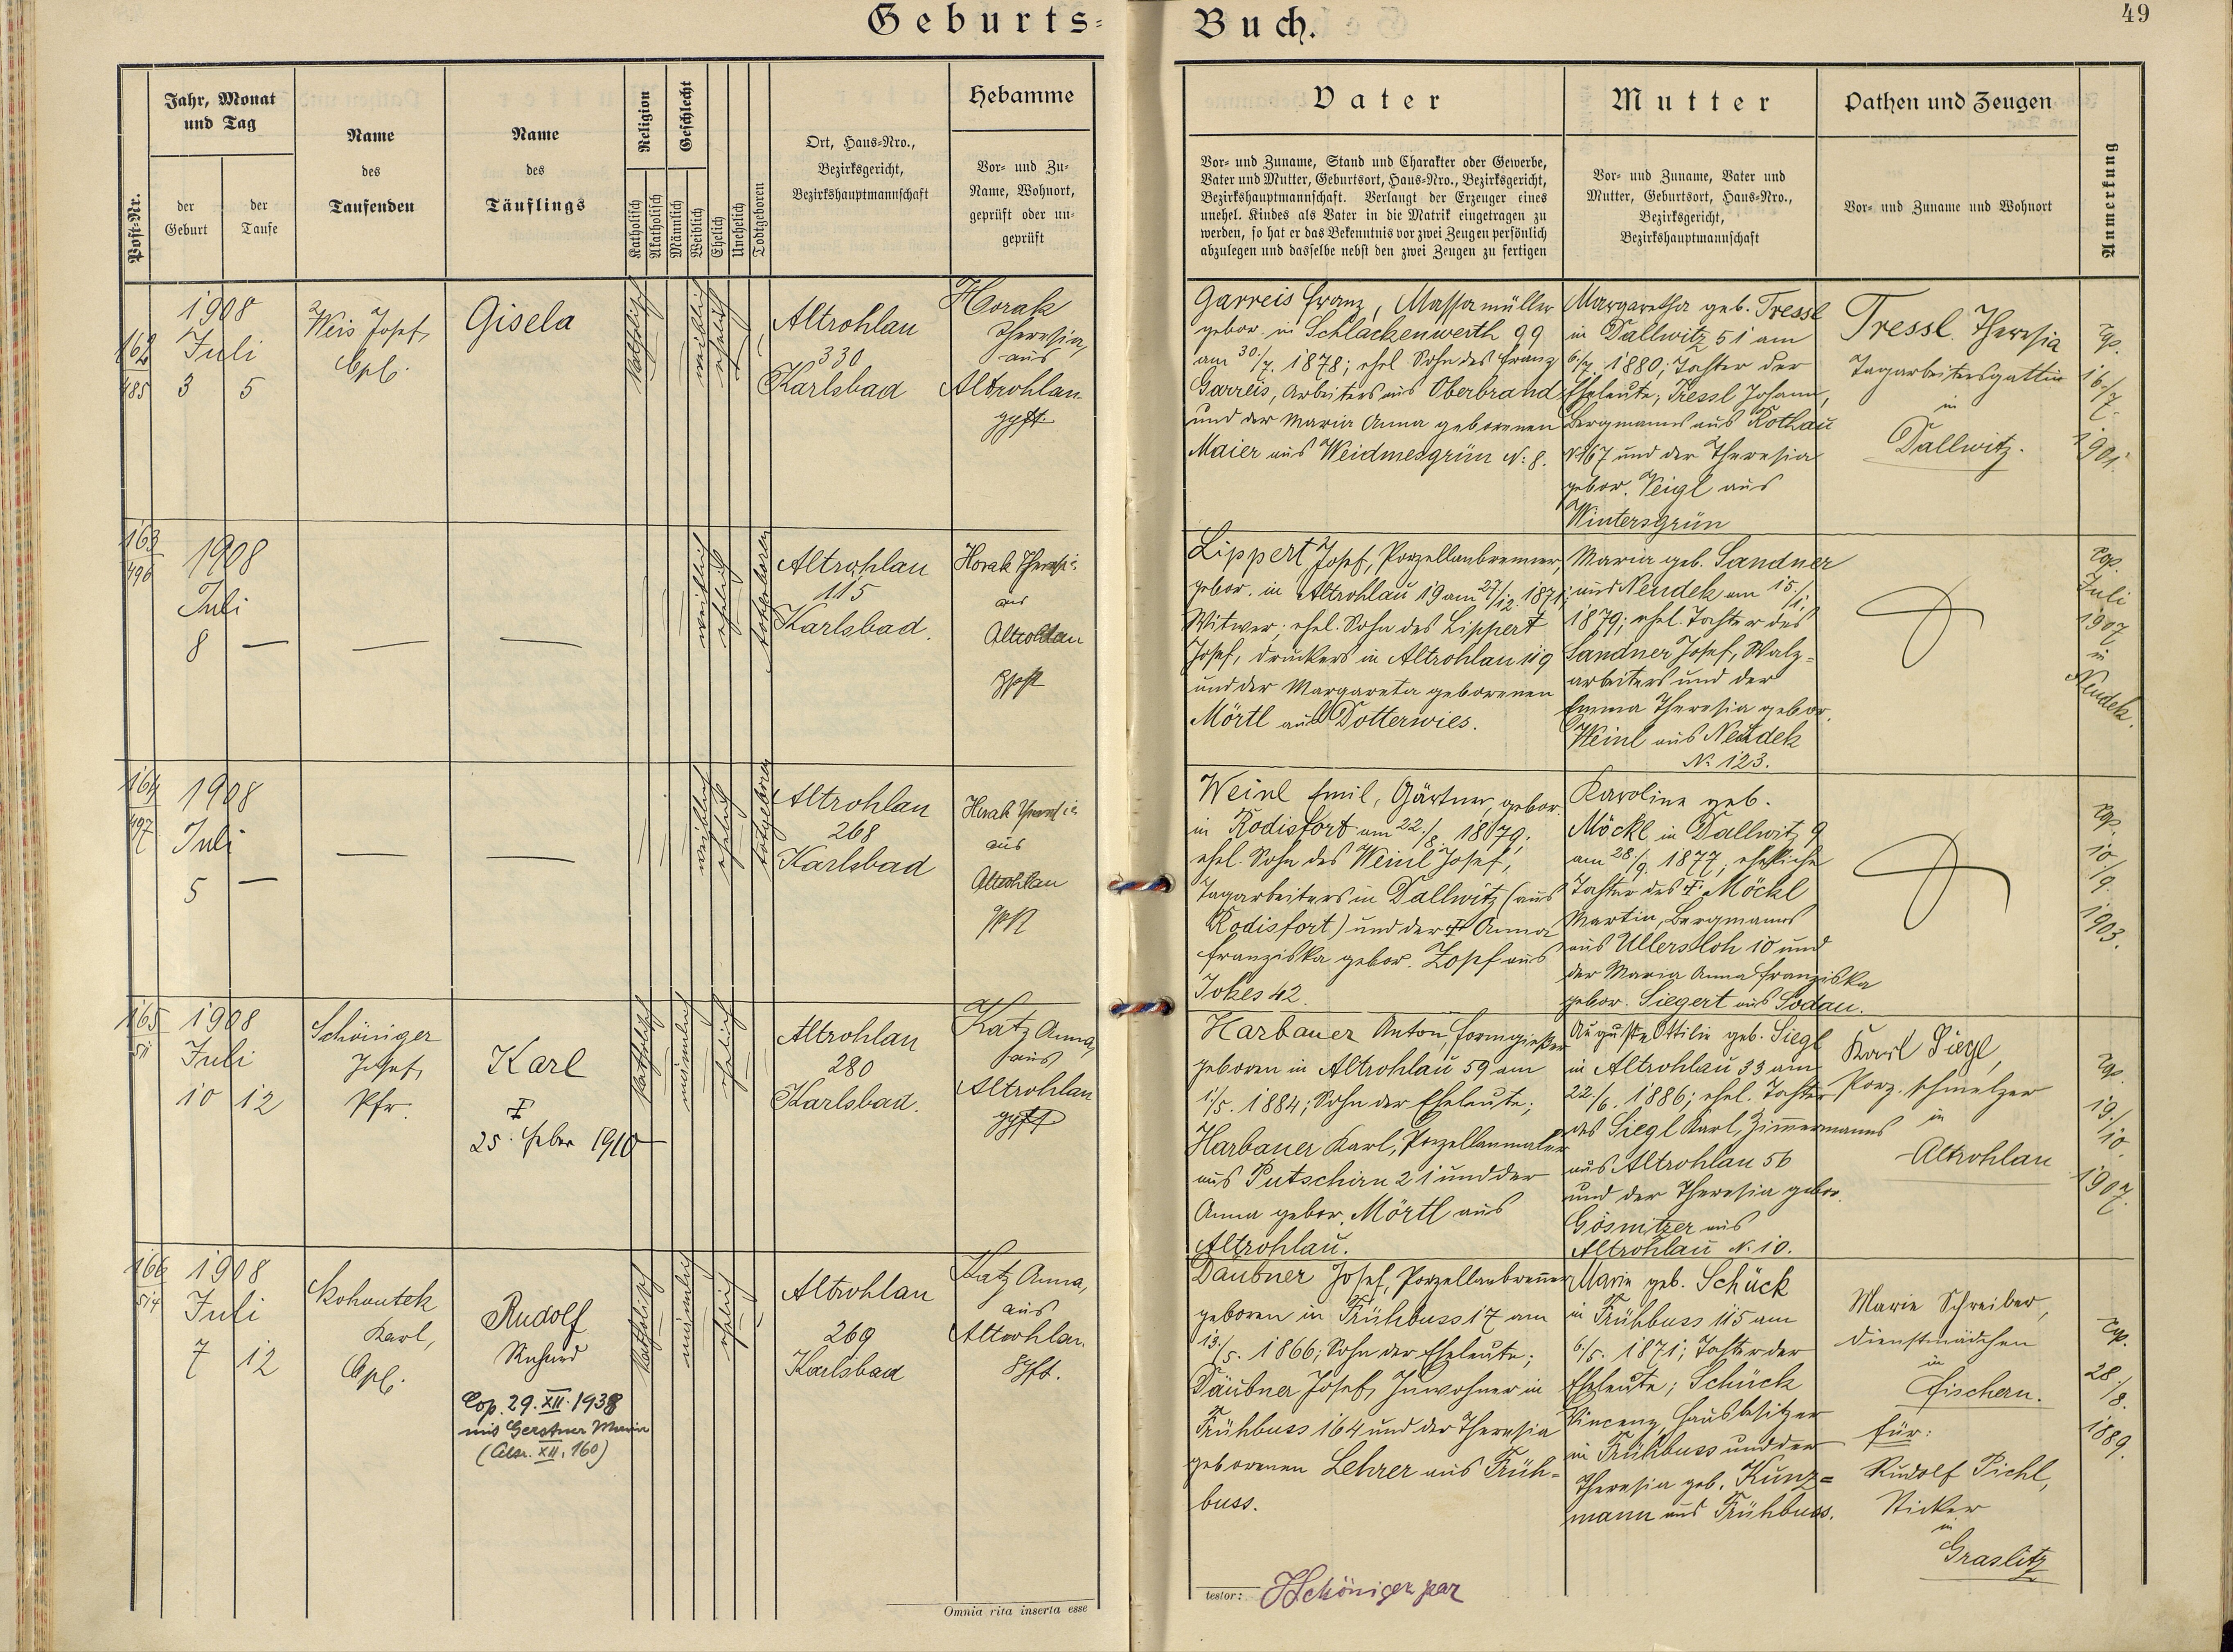 Geburts=
Buch.
49
Post-Nr.
Jahr, Monat
und Tag
der
Geburt
der
Taufe
Name
des
Taufenden
Name
des
Täuflings
Religion
Katholisch
Akatholisch
Geschlecht
Männlich
Weiblich
Ehelich
Unehelich
Todtgeboren
Ort, Haus-Nro.,
Bezirksgericht,
Bezirkshauptmannschaft
Hebamme
Vor- und Zu-
Name, Wohnort,
geprüft oder un-
geprüft
Vater
Vor- und Zuname, Stand und Charakter oder Gewerbe,
Vater und Mutter, Geburtsort, Haus-Nro., Bezirksgericht,
Bezirkshauptmannschaft. Verlangt der Erzeuger eines
unehel. Kindes als Vater in die Matrik eingetragen zu
werden, so hat er das Bekenntnis vor zwei Zeugen persönlich
abzulegen und dasselbe nebst den zwei Zeugen zu fertigen
Mutter
Vor- und Zuname, Vater und
Mutter, Geburtsort, Haus-Nro.,
Bezirksgericht,
Bezirkshauptmannschaft
Pathen und Zeugen
Vor- und Zuname und Wohnort
Anmerkung
162
485
1908
Juli
3 5
Weis Josef,
Cpl.
Gisela
katholisch
weiblich
ehelich
Altrohlau
330
Karlsbad
Horak
Theresia,
aus
Altrohlau
gpft.
Garreis Franz, Massamüller
gebor. in Schlackenwerth 99
am 30./7. 1878; ehel. Sohn des Franz
Garreis, Arbeiters aus Oberbrand
und der Maria Anna geborenen
Maier aus Weidmesgrün N: 8.
Margaretha geb. Tressl
in Dallwitz 51 am
6./7. 1880; Tochter der
Eheleute; Tressl Johann,
Bergmanns aus Rothau
N 67 und der Theresia
gebor. Veigl aus
Wintersgrün
Tressl Theresia
Tagarbeitersgattin
in
Dallwitz.
cop.
16./7.
1901.
163
496
1908
Juli
8 —
—
—
weiblich
ehelich
totgeboren
Altrohlau
115
Karlsbad.
Horak Theresia
aus
Altrohlau
gpft
Lippert Josef, Porzellanbrenner,
gebor. in Altrohlau 19 am 27/12. 1871;
Witwer; ehel. Sohn des Lippert
Josef, Druckers in Altrohlau 119
und der Margareta geborenen
Mörtl aus Dotterwies.
Maria geb. Sandner
aus Neudek am 15./1.
1879; ehel. Tochter des
Sandner Josef, Walz=
arbeiters und der
Emma Theresia gebor.
Weinl aus Neudek
N: 123.
cop.
Juli
1907
in
Neudek.
164
497
1908
Juli
5 —
—
—
weiblich
ehelich
totgeboren
Altrohlau
268
Karlsbad
Horak Theresia
aus
Altrohlau
gpft
Weinl Emil, Gärtner, gebor.
in Rodisfort am 22./8. 1879;
ehel. Sohn des Weinl Josef,
Tagarbeiters in Dallwitz (aus
Rodisfort) und der † Anna
Franziska gebor. Zopf aus
Jokes 42.
Karoline geb.
Möckl in Dallwitz 9
am 28./9. 1877; eheliche
Tochter des † Möckl
Martin, Bergmanns
aus Ullersloh 10 und
der Maria Anna Franziska
gebor. Siegert aus Sodau.
cop.
10./9.
1903.
165
511
1908
Juli
10 12
Schöniger
Josef,
Pfr.
Karl
†
25. Feber 1910
katholisch
männlich
ehelich
Altrohlau
280
Karlsbad.
Katz Anna,
aus
Altrohlau
gpft
Harbauer Anton, Formgießer
geboren in Altrohlau 59 am
1./5. 1884; Sohn der Eheleute;
Harbauer Karl, Porzellanmaler
aus Putschirn 21 und der
Anna gebor. Mörtl aus
Altrohlau.
Auguste Ottilie geb. Siegl
in Altrohlau 33 am
22./6. 1886; ehel. Tochter
des Siegl Karl, Zimmermanns
aus Altrohlau 56
und der Theresia gebor.
Gösnitzer aus
Altrohlau N. 10.
Karl Siegl,
Porz. schmelzer
in
Altrohlau
cop.
19./10.
1907.
166
514
1908
Juli
7 12
Kohoutek
Karl,
Cpl.
Rudolf
Richard
Cop. 29. XII. 1938
mit Gerstner Maria
katholisch
männlich
ehelich
Altrohlau
269
Karlsbad
Katz Anna,
aus
Altrohlau.
gpft.
Däubner Josef, Porzellanbrenner
geboren in Frühbuss 17 am
13./5. 1866; Sohn der Eheleute;
Däubner Josef, Inwohner in
Frühbuss 164 und der Theresia
geborenen Lehrer aus Früh=
buss.
Marie geb. Schück
in Frühbuss 115 am
6./5. 1871; Tochter der
Eheleute; Schück
Vincenz, Hausbesitzer
in Frühbuss und der
Theresia geb. Kunz=
mann aus Frühbuss.
Marie Schreiber,
Dienstmädchen
in
Fischern.
für:
Rudolf Pichl,
Sticker
in
Graslitz
cop.
28./8.
1889.
Omnia rita inserta esse
testor: JSchöniger par